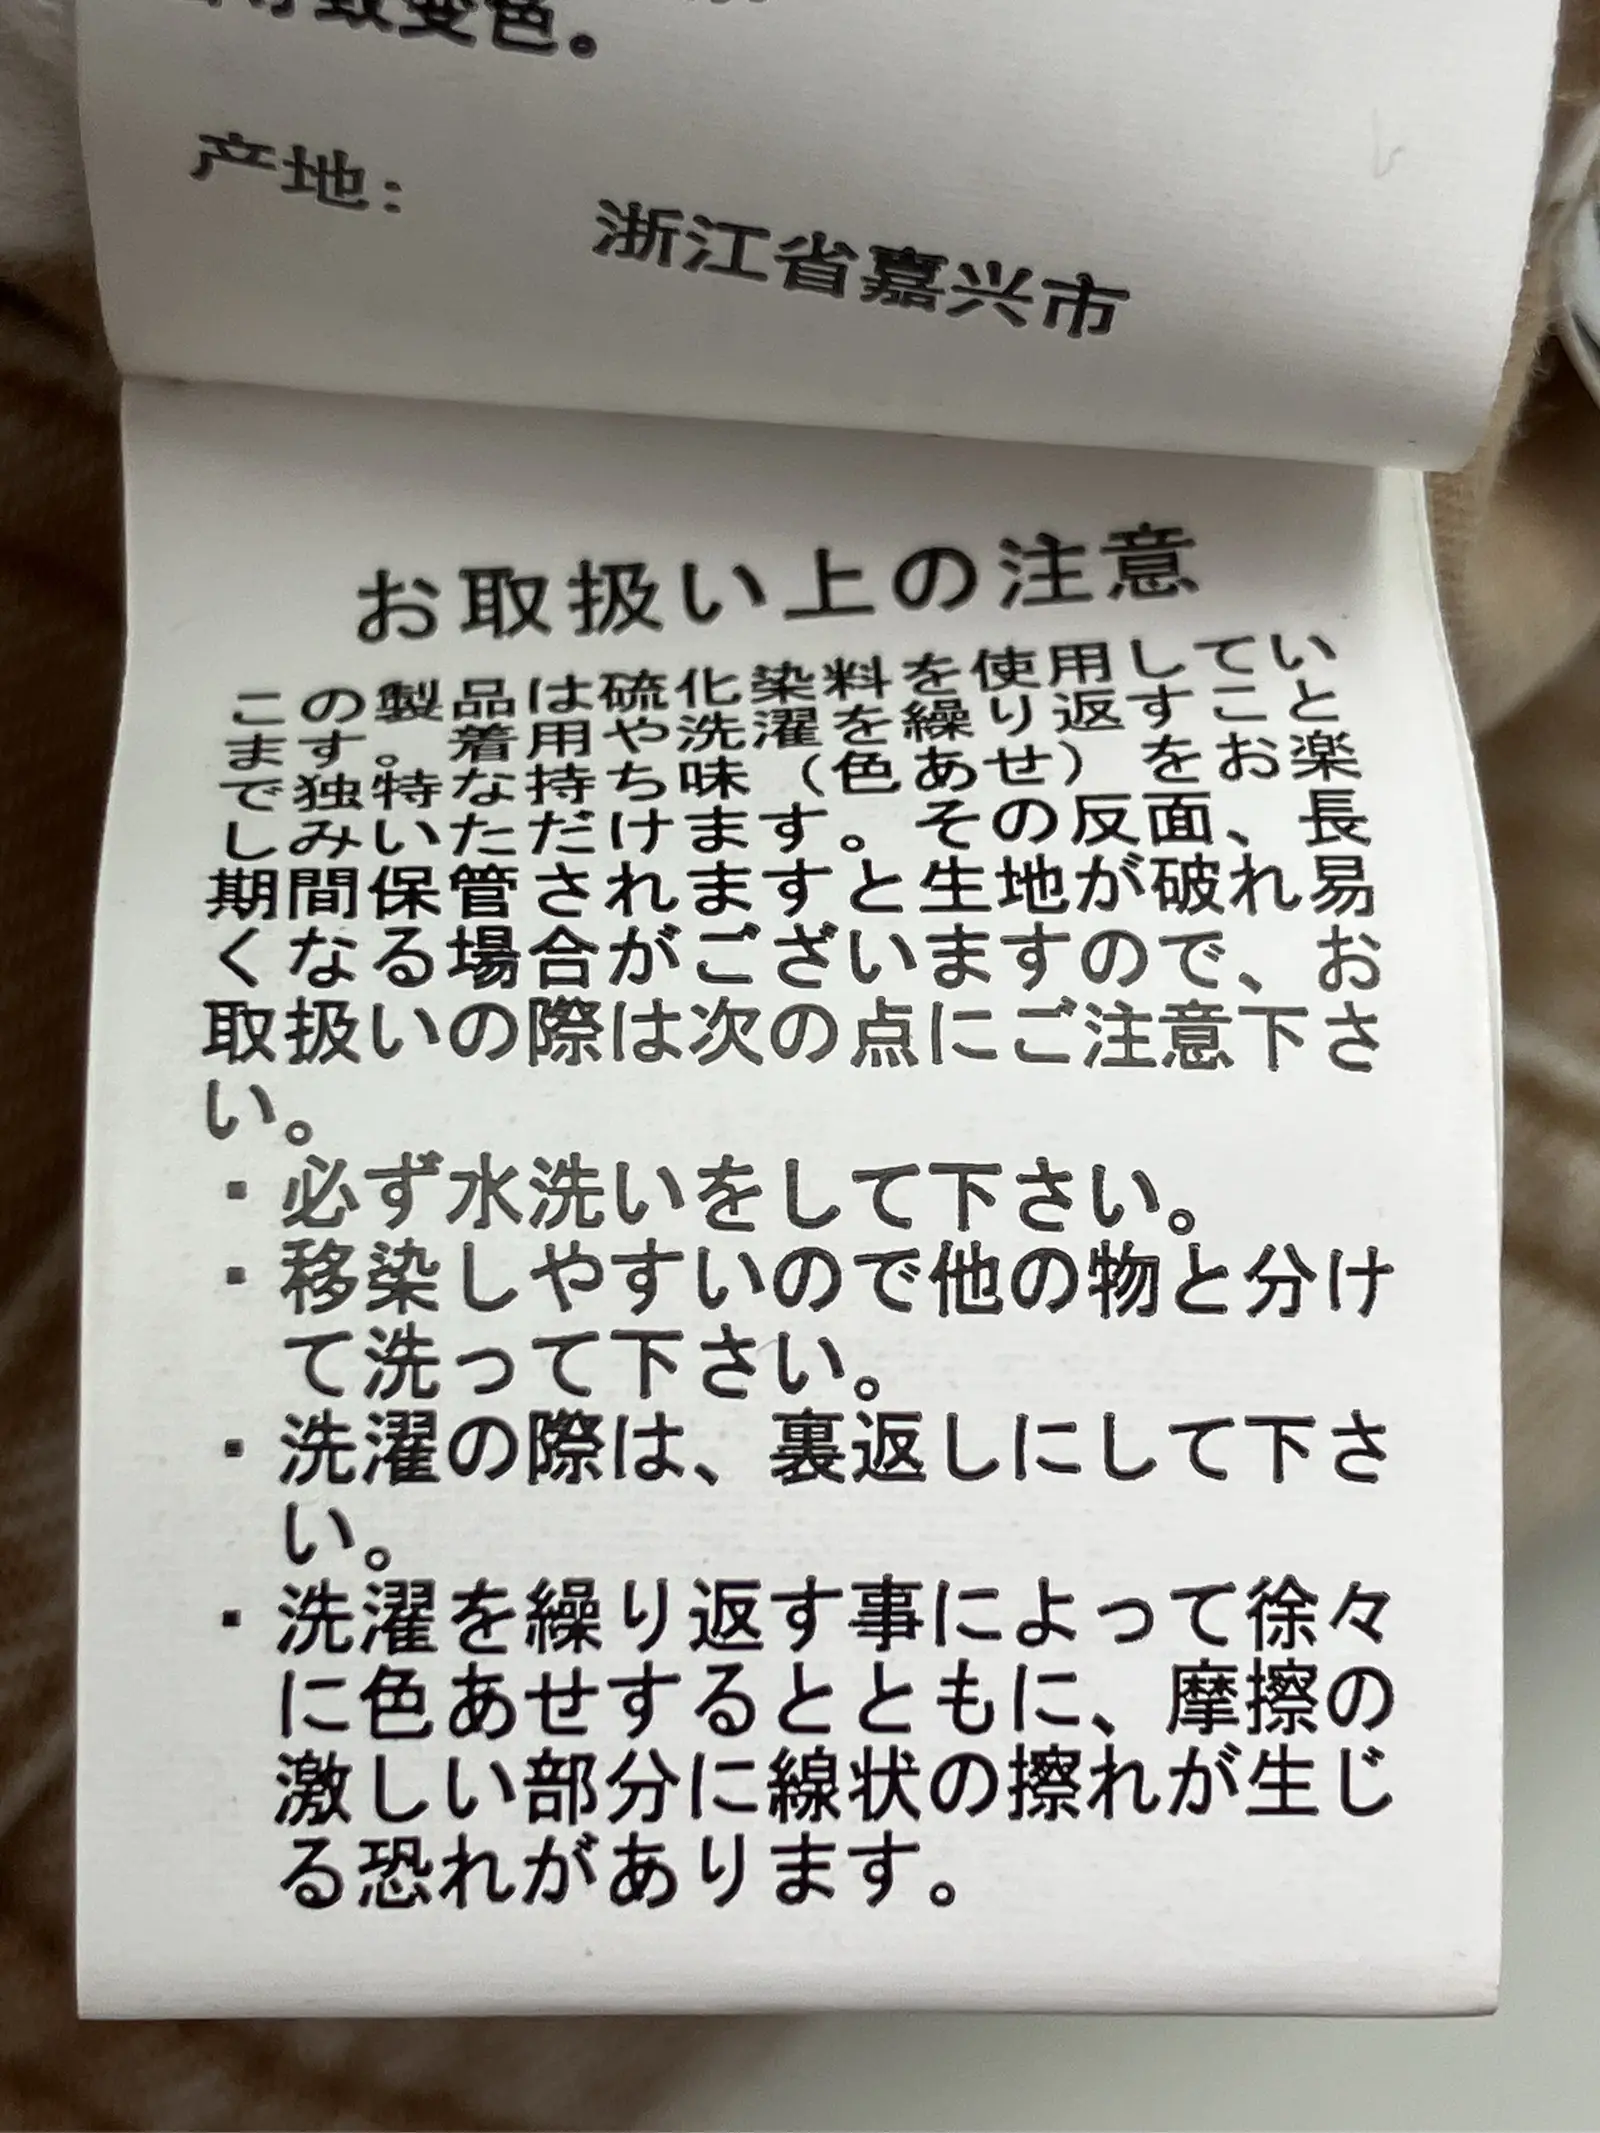 变色。
产地: 浙江省嘉兴市
お取扱い上の注意
この製品は硫化染料を使用してい
ます。着用や洗濯を繰り返すこと
で独特な持ち味（色あせ）をお楽
しみいただけます。その反面、長
期間保管されますと生地が破れ易
くなる場合がございますので、お
取扱いの際は次の点にご注意下さ
い。
・必ず水洗いをして下さい。
・移染しやすいので他の物と分け
て洗って下さい。
・洗濯の際は、裏返しにして下さ
い。
・洗濯を繰り返す事によって徐々
に色あせするとともに、摩擦の
激しい部分に線状の擦れが生じ
る恐れがあります。